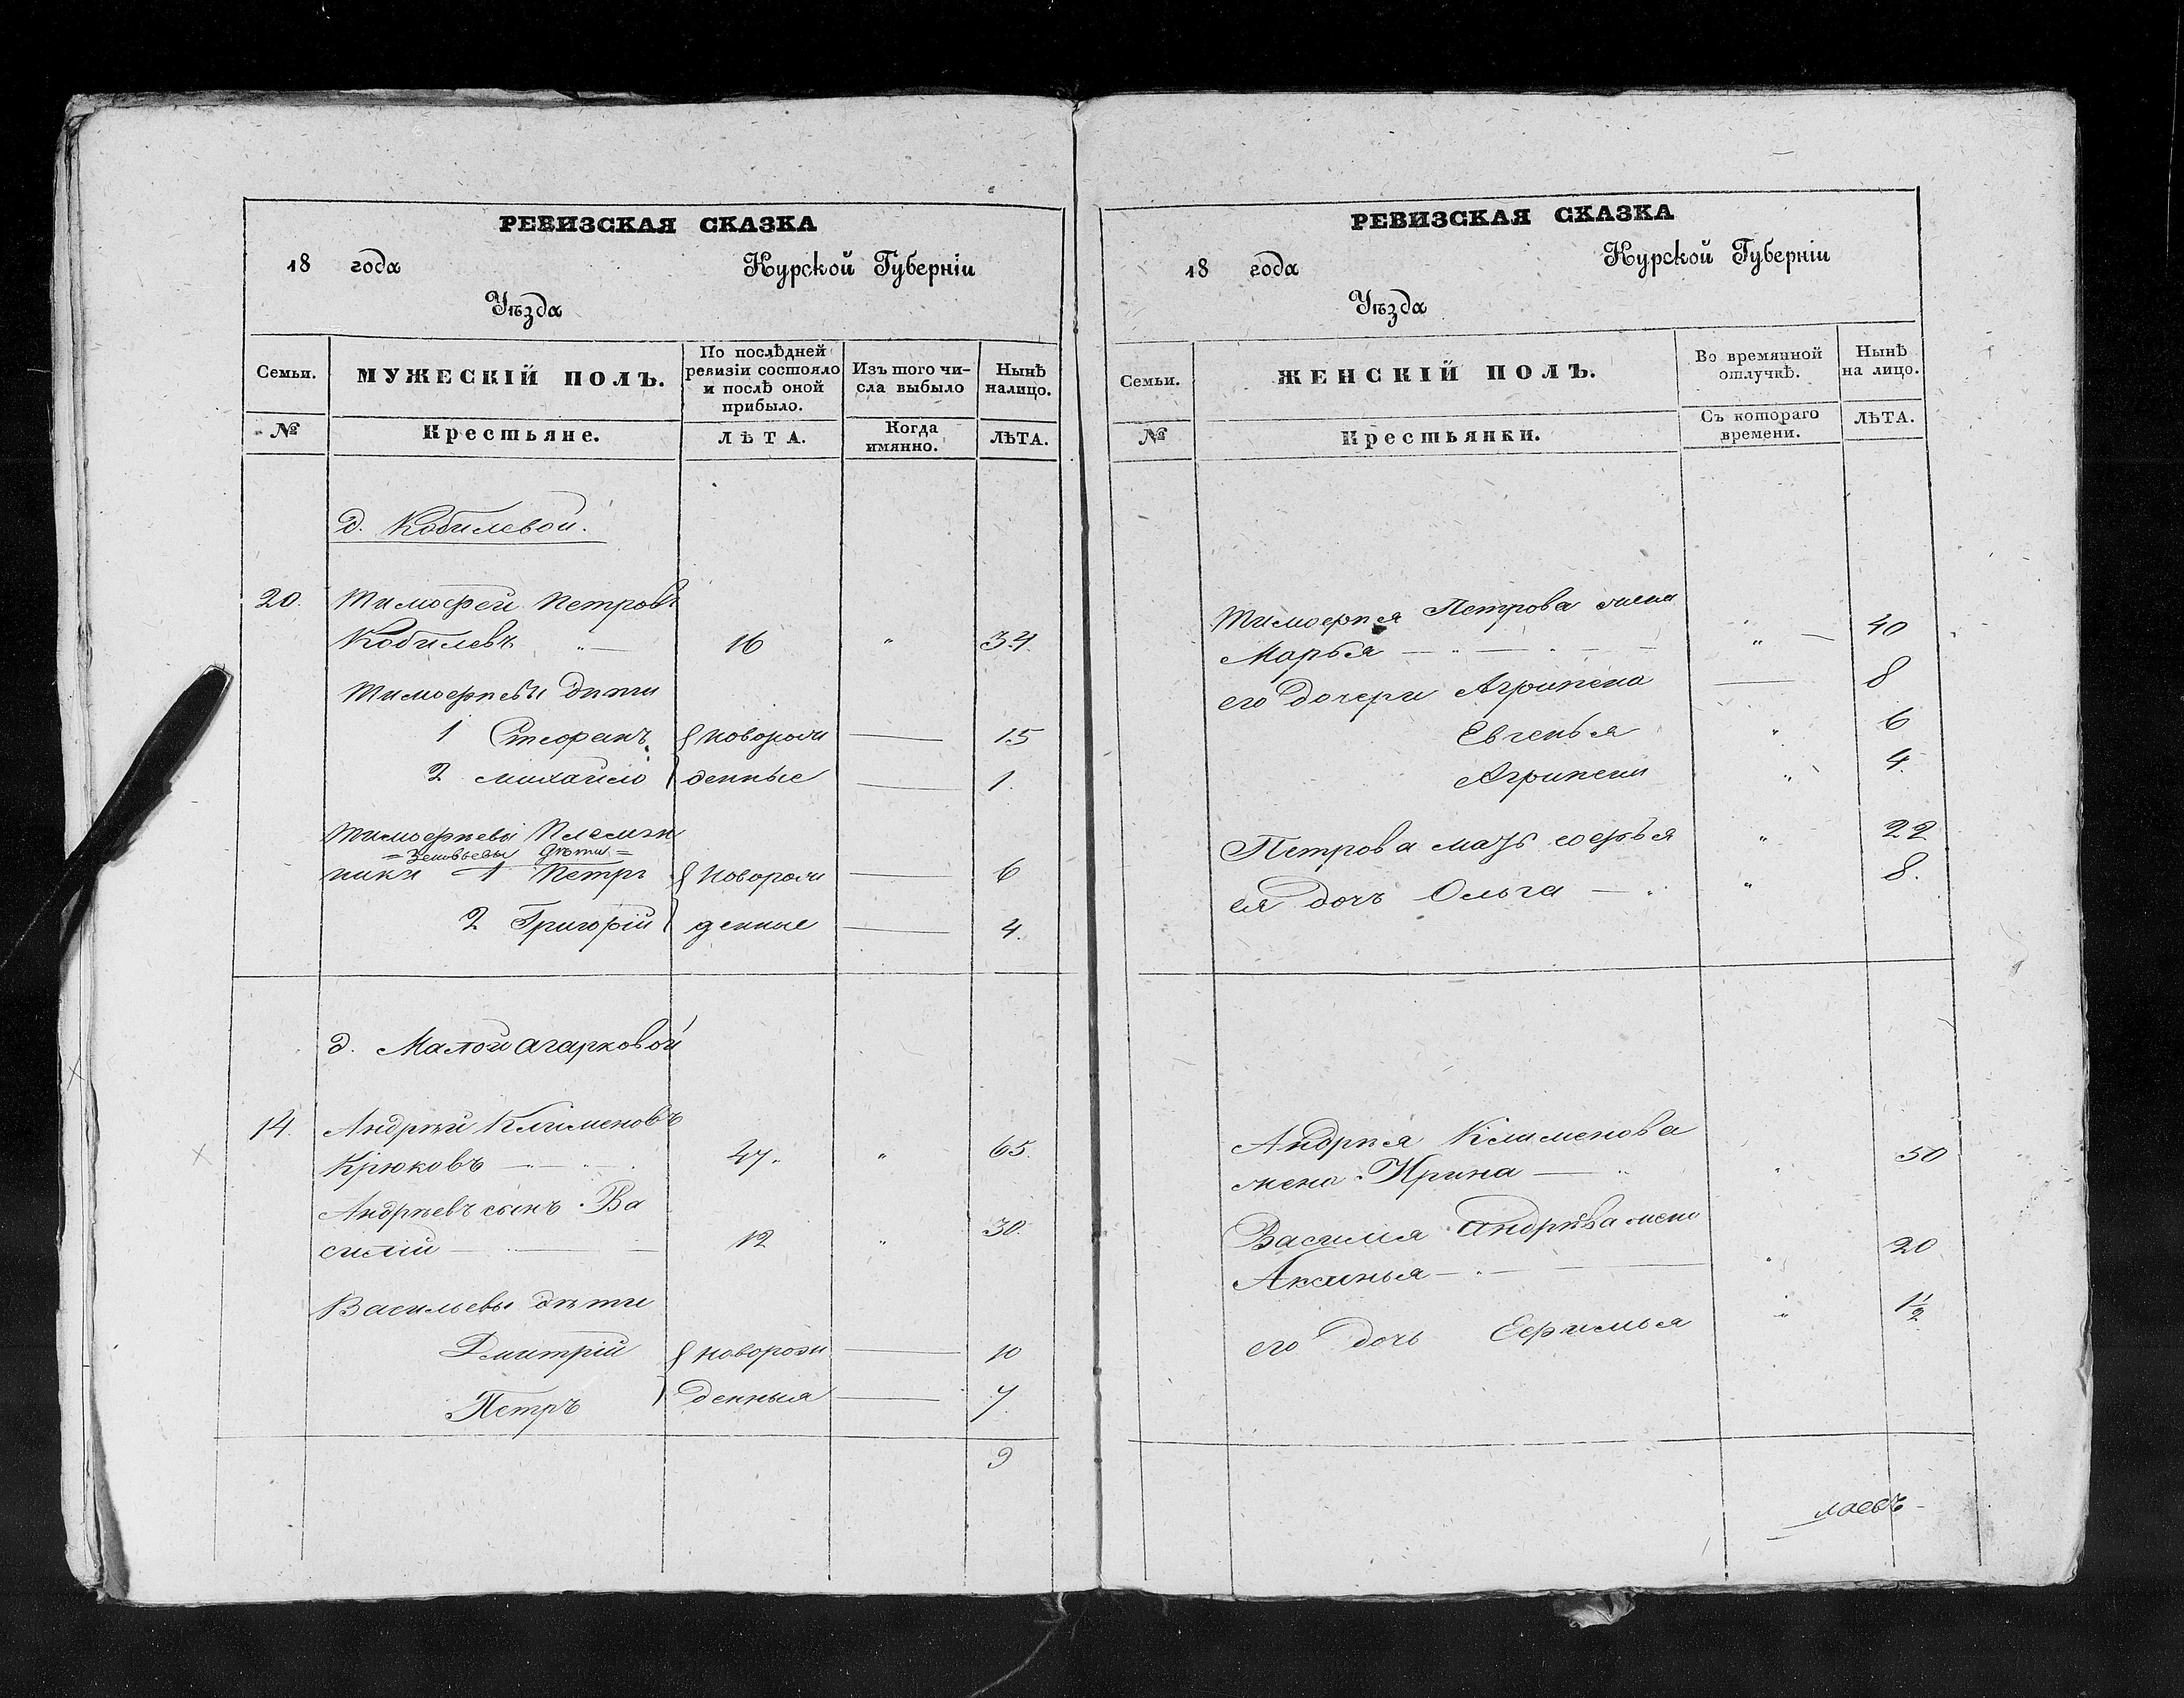 РЕВИЗСКАЯ СКАЗКА
18 года Курской Губерніи
Уѣзда
Семьи. МУЖЕСКІЙ ПОЛЪ. По послѣдней ревизіи состояло и послѣ оной прибыло. Изъ того числа выбыло Нынѣ налицо.
№ Крестьяне. ЛѢТА. Когда имянно. ЛѢТА.
д. Кобилевой.
20. Тимофей Петровъ
Кобилевъ " 16 " 34.
Тимофѣевы дѣти
1 Стефанъ новорож 15
2 Михайло денные 1.
Тимофѣевы Племян
= дѣти =
ники 1 Петръ новорож 6
2 Григорій денные 4.
д. Малой Агарковой
14. Андрѣй Клименовъ
Крюковъ 47. " 65.
Андрѣевъ сынъ Ва
силій 12 " 30.
Васильевы дѣти
Дмитрій новорож 10
Петръ денныя 7.
9
РЕВИЗСКАЯ СКАЗКА
18 года Курской Губерніи
Уѣзда
Семьи. ЖЕНСКІЙ ПОЛЪ. Во времянной отлучкѣ. Нынѣ на лицо.
№ Крестьянки. Съ котораго времени. ЛѢТА.
Тимофѣя Петрова жена
Марья " 40
его дочери Агрипена 8
Евгенья " 6
Агрипена " 4.
Петрова мать софья " 22
ея дочь Ольга " 8.
Андрѣя Клименова
жена Ирина " 50
Василія Андрѣва жена
Аксинья " 20
его дочь Ефимья " 1½